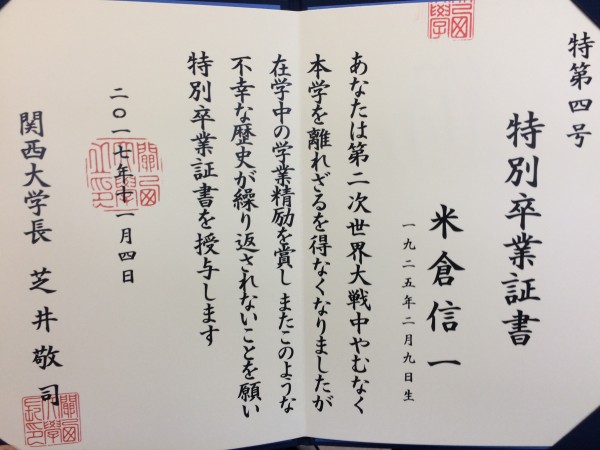 特第四号
特別卒業証書
米倉信一
一九二五年二月九日生
あなたは第二次世界大戦中やむなく
本学を離れざるを得なくなりましたが
在学中の学業精励を賞し またこのような
不幸な歴史が繰り返されないことを願い
特別卒業証書を授与します
二〇一七年十一月四日
関西大学長 芝井敬司